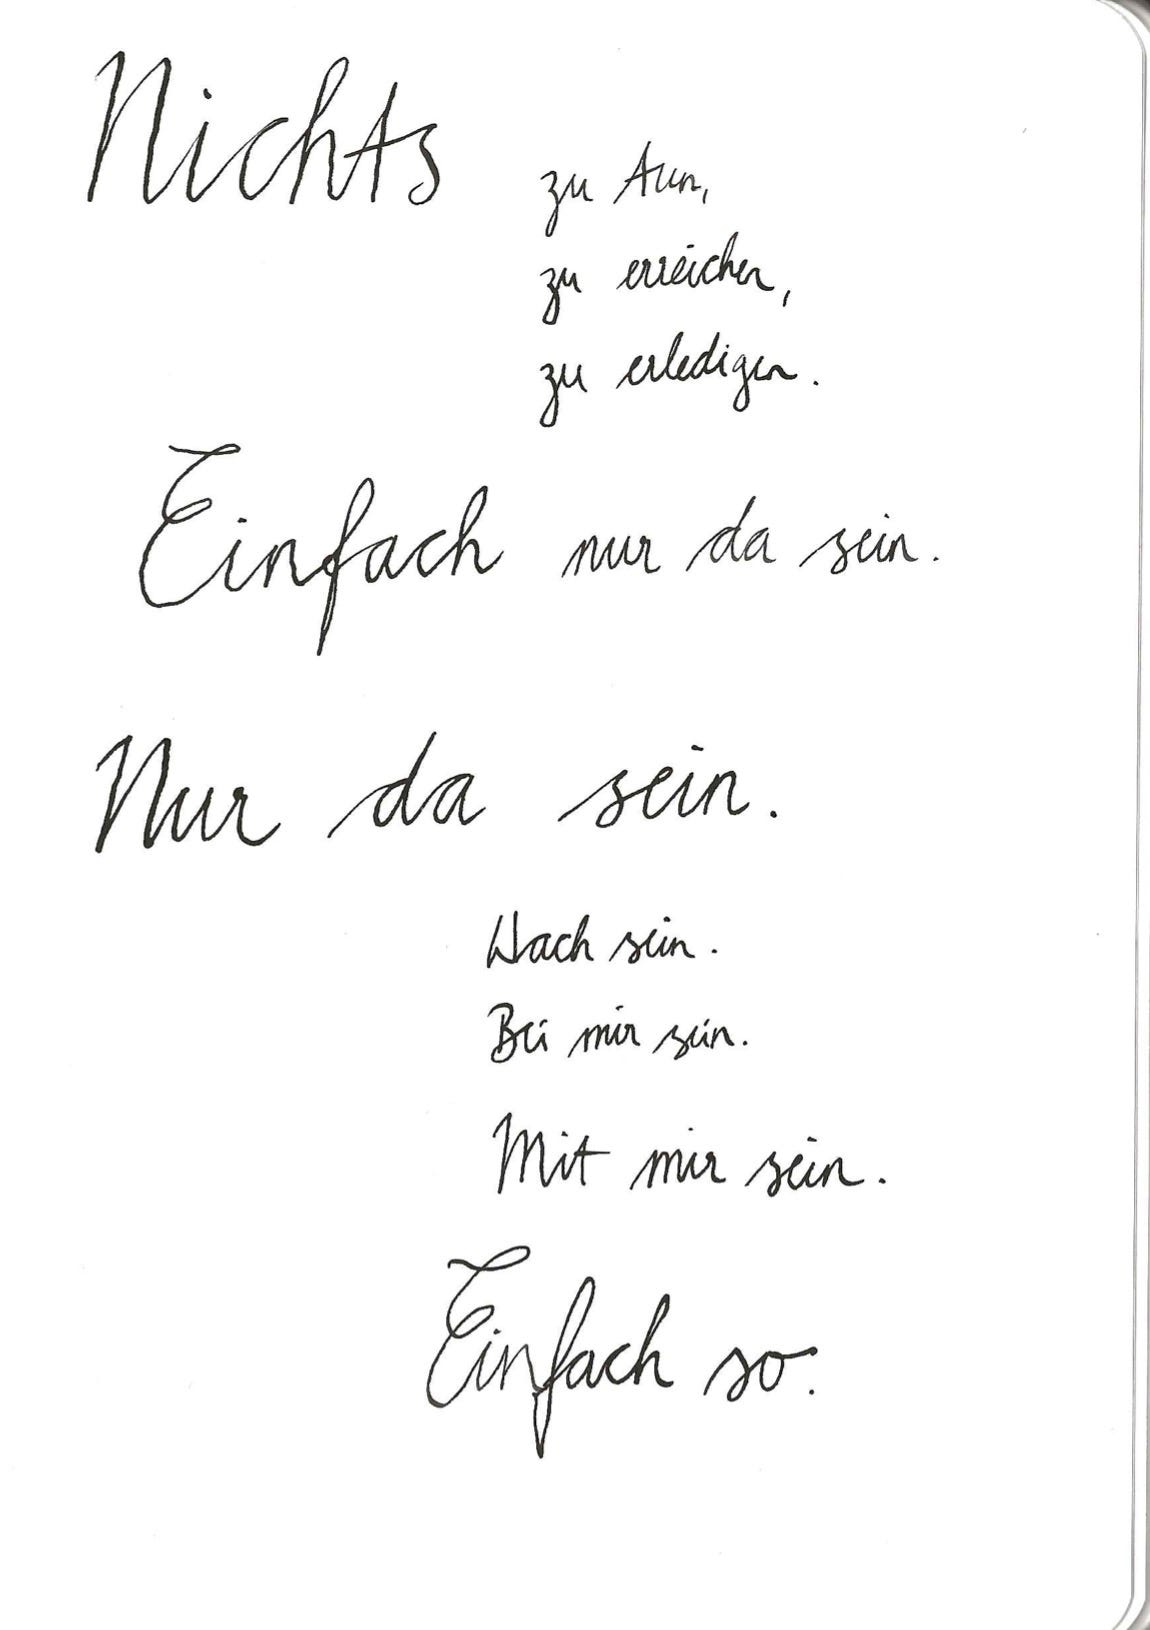 Nichts zu tun,
zu erreichen,
zu erledigen.
Einfach nur da sein.
Nur da sein.
Wach sein.
Bei mir sein.
Mit mir sein.
Einfach so.